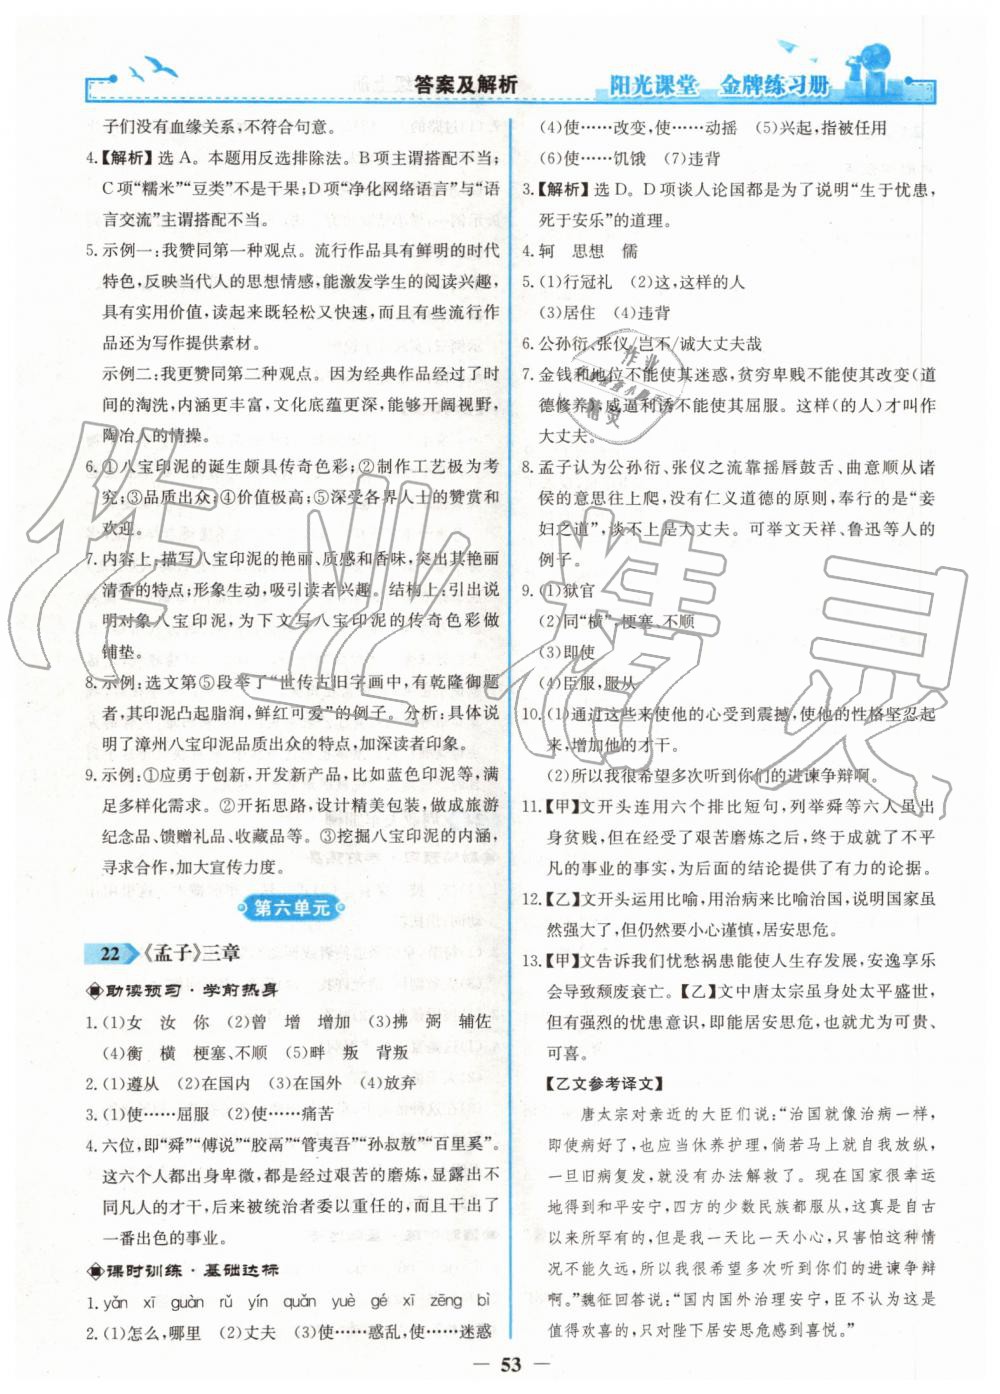 答案及解析
阳光课堂 金牌练习册
子们没有血缘关系,不符合句意。
4.【解析】选A。本题用反选排除法。B项主谓搭配不当;
C项“糯米”“豆类”不是干果;D项“净化网络语言”与“语
言交流”主谓搭配不当。
5. 示例一:我赞同第一种观点。流行作品具有鲜明的时代
特色,反映当代人的思想情感,能激发学生的阅读兴趣,
具有实用价值,读起来既轻松又快速,而且有些流行作
品还为写作提供素材。
示例二:我更赞同第二种观点。因为经典作品经过了时
间的淘洗,内涵更丰富,文化底蕴更深,能够开阔视野,
陶冶人的情操。
6. ①八宝印泥的诞生颇具传奇色彩;②制作工艺极为考
究;③品质出众;④价值极高;⑤深受各界人士的赞赏和
欢迎。
7. 内容上:描写八宝印泥的艳丽、质感和香味,突出其艳丽
清香的特点;形象生动,吸引读者兴趣。结构上:引出说
明对象八宝印泥,为下文写八宝印泥的传奇色彩做
铺垫。
8. 示例:选文第⑤段举了“世传古旧字画中,有乾隆御题
者,其印泥凸起脂润,鲜红可爱”的例子。分析:具体说
明了漳州八宝印泥品质出众的特点,加深读者印象。
9. 示例:①应勇于创新,开发新产品,比如蓝色印泥等,满
足多样化需求。②开拓思路,设计精美包装,做成旅游
纪念品、馈赠礼品、收藏品等。③挖掘八宝印泥的内涵,
寻求合作,加大宣传力度。
第六单元
22 《孟子》三章
助读预习·学前热身
1. (1)女 汝 你 (2)曾 增 增加 (3)拂 弼 辅佐
(4)衡 横 梗塞、不顺 (5)畔 叛 背叛
2. (1)遵从 (2)在国内 (3)在国外 (4)放弃
3. (1)使……屈服 (2)使……痛苦
4. 六位,即“舜”“傅说”“胶鬲”“管夷吾”“孙叔敖”“百里奚”。
这六个人都出身卑微,都是经过艰苦的磨炼,显露出不
同凡人的才干,后来被统治者委以重任的,而且干出了
一番出色的事业。
课时训练·基础达标
1. yǎn xī guàn rǔ yín quǎn yuè gé xī zēng bì
2. (1)怎么,哪里 (2)丈夫 (3)使……惑乱,使……迷惑
(4)使……改变,使……动摇 (5)兴起,指被任用
(6)使……饥饿 (7)违背
3.【解析】选D。D项谈人论国都是为了说明“生于忧患,
死于安乐”的道理。
4. 轲 思想 儒
5. (1)行冠礼 (2)这,这样的人
(3)居住 (4)违背
6. 公孙衍、张仪/岂不/诚大丈夫哉
7. 金钱和地位不能使其迷惑,贫穷卑贱不能使其改变(道
德修养),威逼利诱不能使其屈服。这样(的人)才叫作
大丈夫。
8. 孟子认为公孙衍、张仪之流靠摇唇鼓舌、曲意顺从诸
侯的意思往上爬,没有仁义道德的原则,奉行的是“妾
妇之道”,谈不上是大丈夫。可举文天祥、鲁迅等人的
例子。
9. (1)狱官
(2)同“横”,梗塞、不顺
(3)即使
(4)臣服,服从
10. (1)通过这些来使他的心受到震撼,使他的性格坚忍起
来,增加他的才干。
(2)所以我很希望多次听到你们的进谏争辩啊。
11.【甲】文开头连用六个排比短句,列举舜等六人虽出
身贫贱,但在经受了艰苦磨炼之后,终于成就了不平
凡的事业的事实,为后面的结论提供了有力的论据。
12.【乙】文开头运用比喻,用治病来比喻治国,说明国家虽
然强大了,但仍然要小心谨慎,居安思危。
13.【甲】文告诉我们忧愁祸患能使人生存发展,安逸享乐
会导致颓废衰亡。【乙】文中唐太宗虽身处太平盛世,
但有强烈的忧患意识,即能居安思危,尤为可贵、
可喜。
【乙文参考译文】
唐太宗对亲近的大臣们说:“治国就像治病一样,
即使病好了,也应当休养护理,倘若马上就自我放纵,
一旦旧病复发,就没有办法解救了。现在国家很幸运
地得到和平安宁,四方的少数民族都服从,真是自古
以来所罕有的,但是我一天比一天小心,只害怕这种情
况不能久远,所以我很希望多次听到你们的进谏争辩
啊。”魏征回答说:“国内国外治理安宁,臣不认为这是
值得欢喜的,只对陛下居安思危感到喜悦。”
53
作业精灵